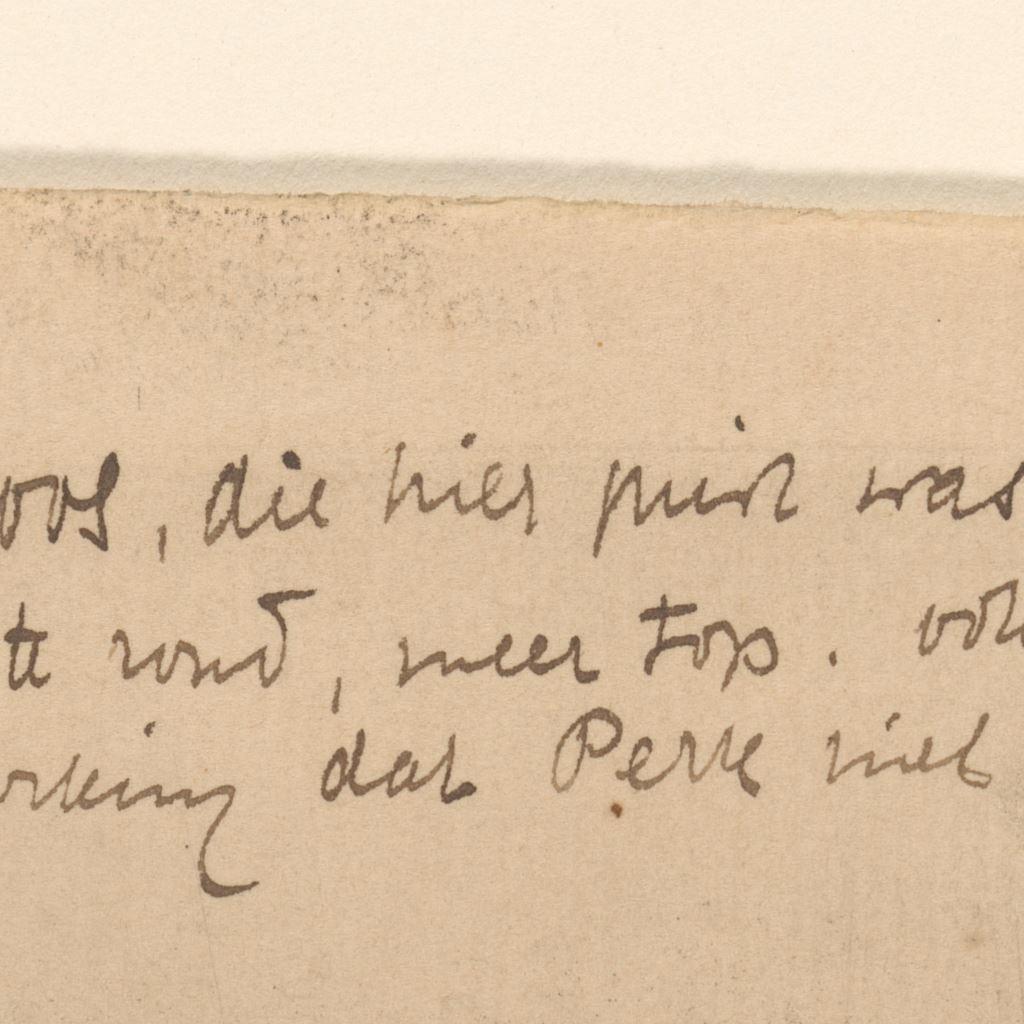 oos, die hier juist was
tt rond, meer top. ook
rking dat Perk niet